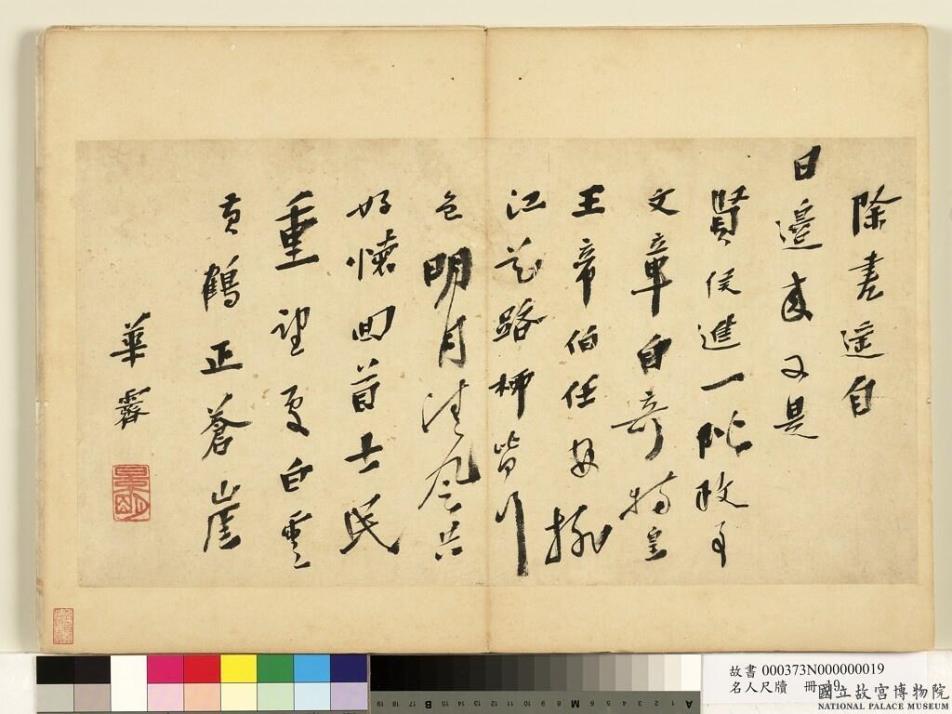 除書遙自
日邊來又是
賢侯進一階政事
文章自奇特皇
王帝伯任安排
江花路柳皆行
色明月清風共
好懷回首士民
重望處白雲
黃鶴正蒼崖
華露
故書 000373N000000019
名人尺牘 冊 19
國立故宮博物院
NATIONAL PALACE MUSEUM